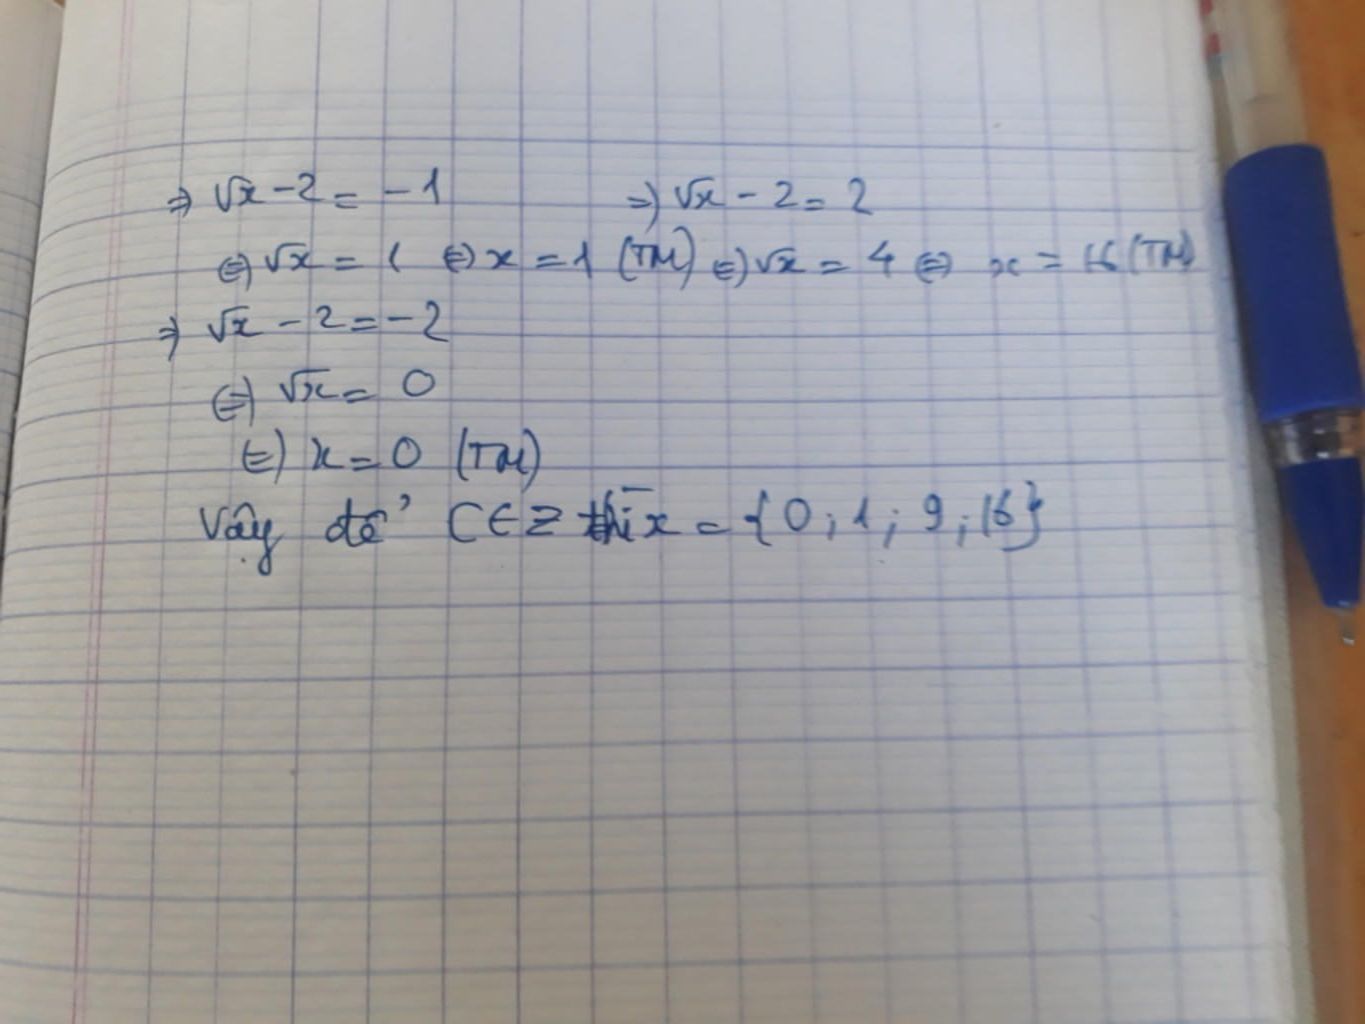 ⇒ √x - 2 = -1 ⇒ √x - 2 = 2
⇔ √x = 1 ⇔ x = 1 (TM) ⇔ √x = 4 ⇔ x = 16 (TM)
⇒ √x - 2 = -2
⇔ √x = 0
⇔ x = 0 (TM)
Vậy để C ∈ Z thì x = {0; 1; 9; 16}